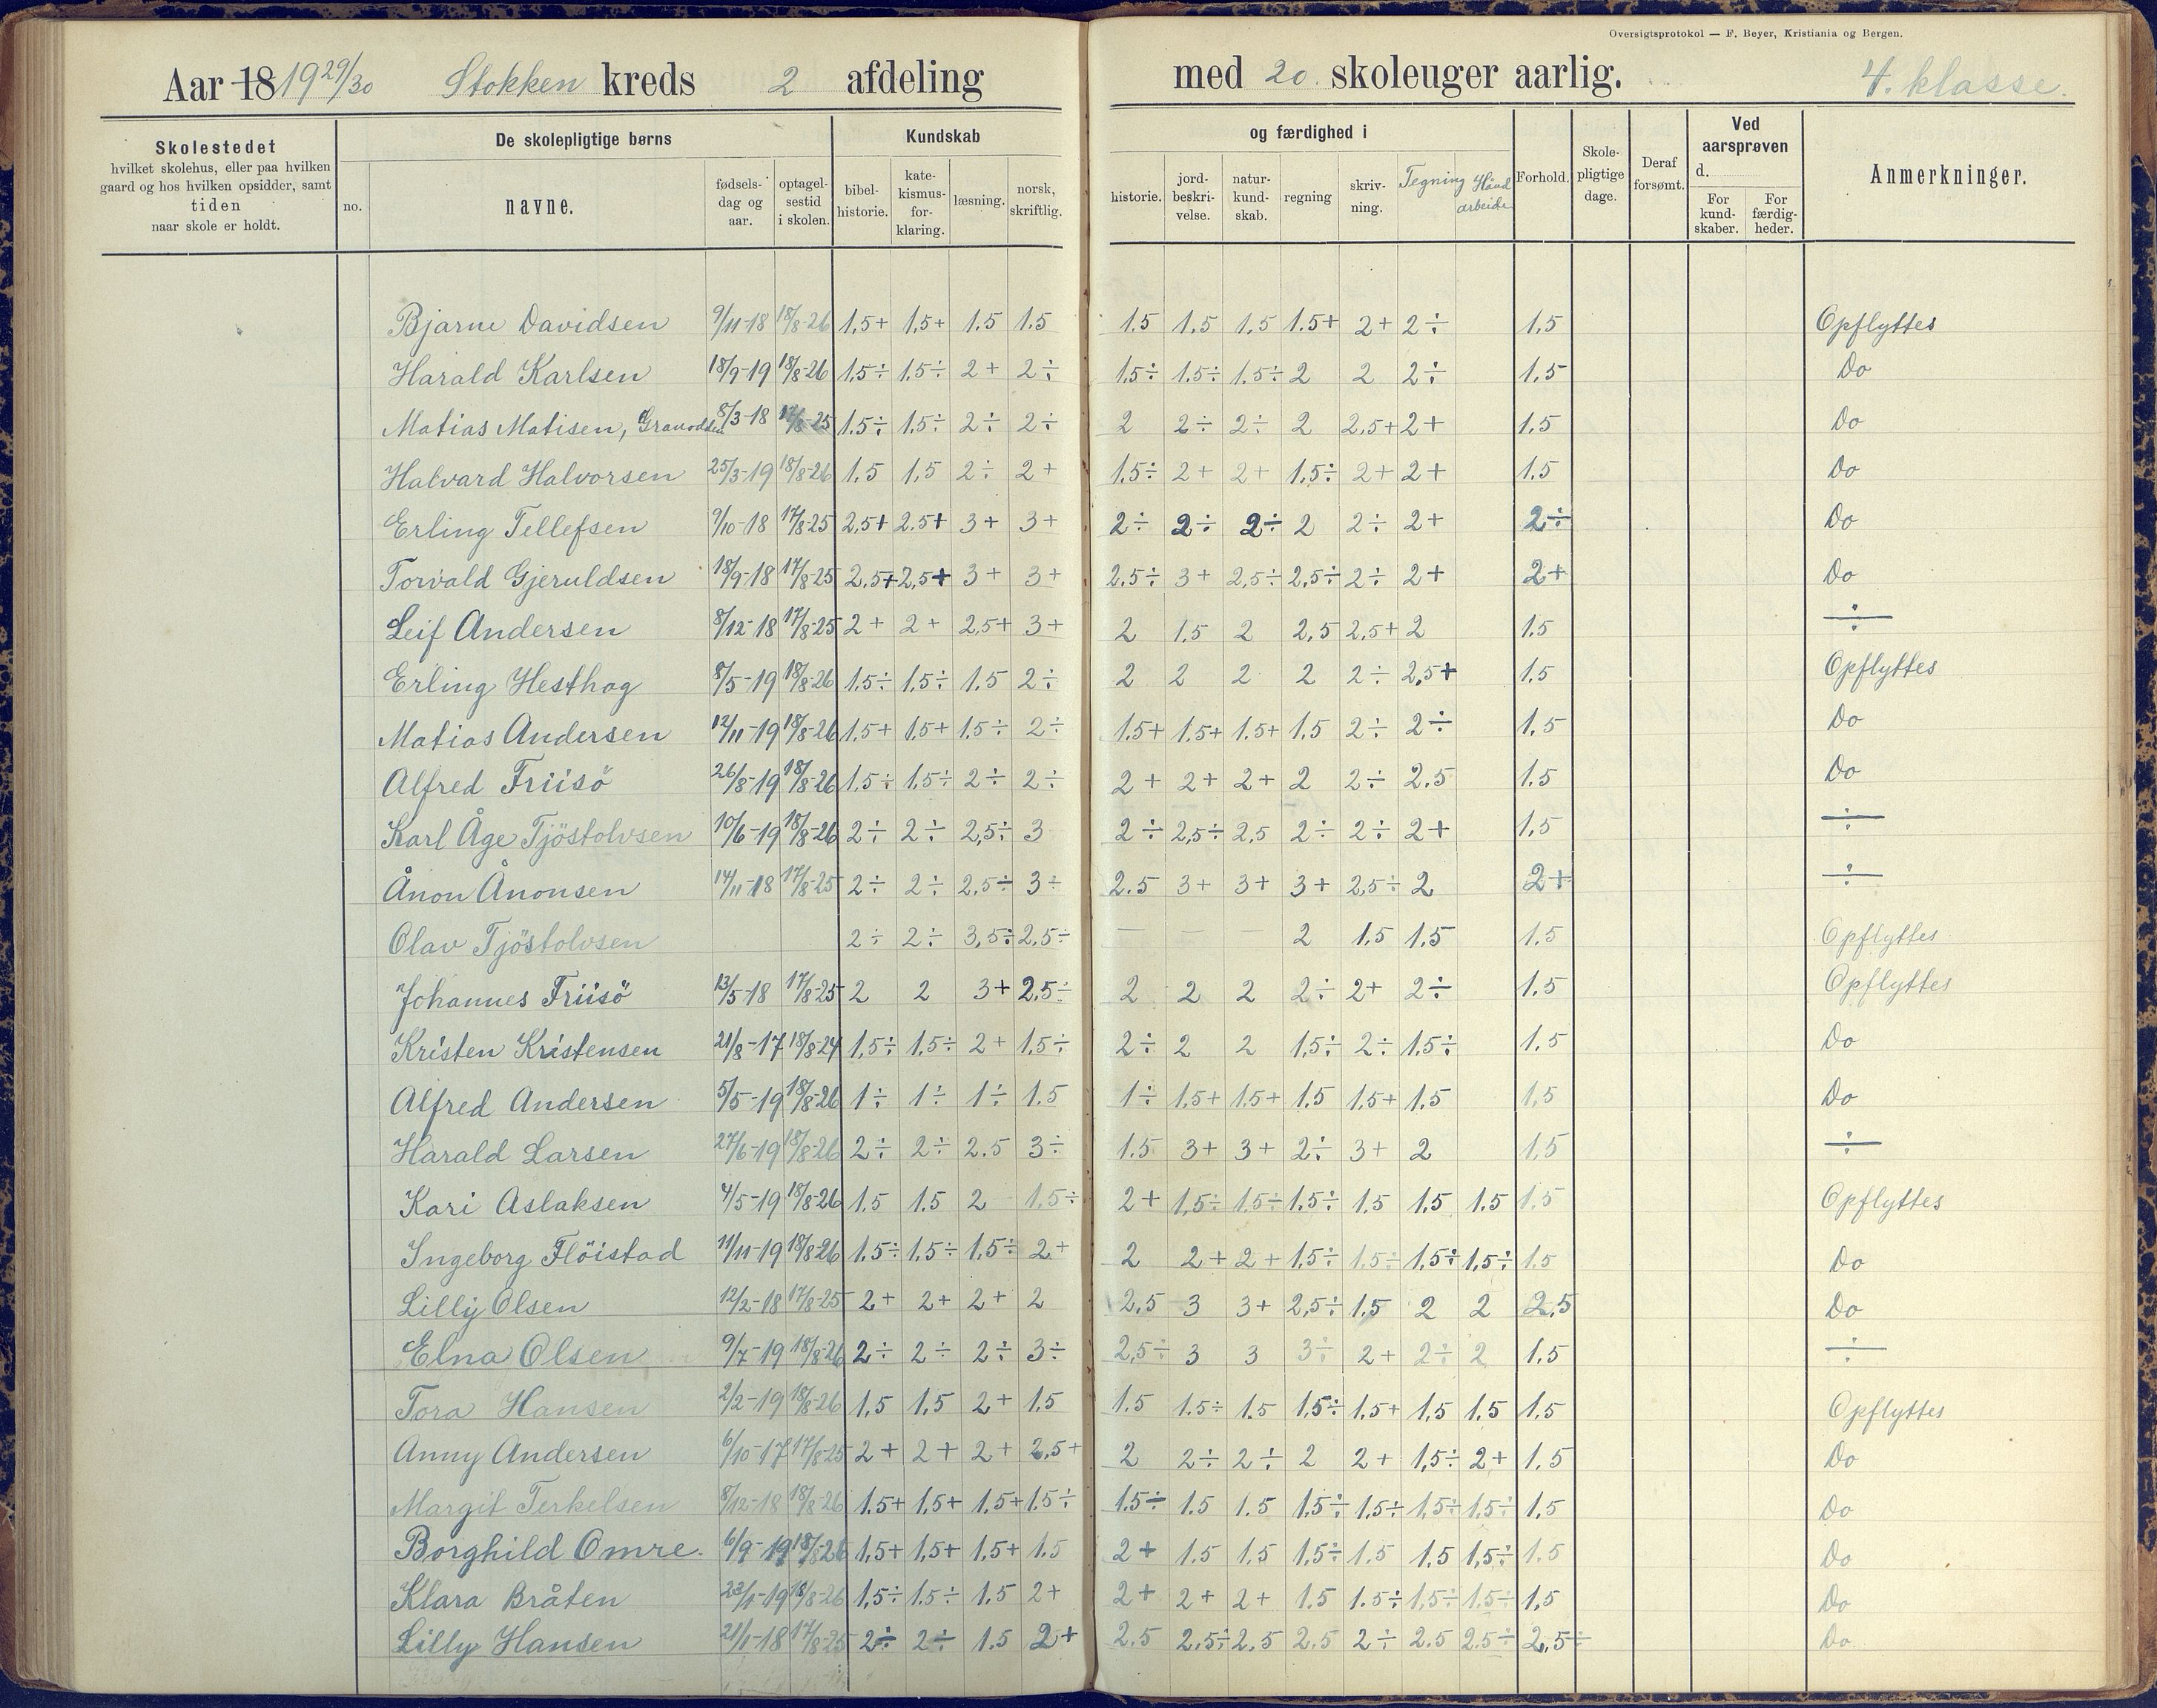 Oversigtsprotokol — F. Beyer, Kristiania og Bergen.
Aar 18 19 29/30 Stokken kreds 2 afdeling med 20. skoleuger aarlig. 4. klasse.
Skolestedet
hvilket skolehus, eller paa hvilken
gaard og hos hvilken opsidder, samt
tiden
naar skole er holdt.
De skolepligtige børns
no.
navne.
fødsels-
dag og
aar.
optagel-
sestid
i skolen.
Kundskab
bibel-
historie.
kate-
kismus-
for-
klaring.
læsning.
norsk,
skriftlig.
og færdighed i
historie.
jord-
beskri-
velse.
natur-
kund-
skab.
regning
skriv-
ning.
Tegning
Hånd
arbeide
Forhold.
Skole-
pligtige
dage.
Deraf
forsømt.
Ved
aarsprøven
d.
For
kund-
skaber.
For
færdig-
heder.
Anmerkninger.
Bjarne Davidsen 9/11-18 18/8-26 1.5+ 1.5+ 1.5 1.5 1.5 1.5 1.5 1.5+ 2+ 2÷ 1.5 Opflyttes
Harald Karlsen 18/9-19 18/8-26 1.5÷ 1.5÷ 2+ 2÷ 1.5÷ 1.5÷ 1.5÷ 2 2 2÷ 1.5 Do
Matias Matisen, 8/3-18 17/8-25 1.5÷ 1.5÷ 2÷ 2÷ 2 2÷ 2÷ 2 2.5+ 2+ 1.5 Do
Halvard Halvorsen 25/3-19 18/8-26 1.5 1.5 2÷ 2+ 1.5÷ 2+ 2+ 1.5÷ 2+ 2+ 1.5 Do
Erling Tellefsen 9/10-18 17/8-25 2.5+ 2.5+ 3+ 3+ 2÷ 2÷ 2÷ 2 2÷ 2+ 2÷ Do
Torvald Gjeruldsen 18/9-18 17/8-25 2.5+ 2.5+ 3+ 3+ 2.5÷ 3+ 2.5÷ 2.5÷ 2÷ 2+ 2+ Do
Leif Andersen 8/12-18 17/8-25 2+ 2+ 2.5+ 3+ 2 1.5 2 2.5 2.5+ 2 1.5 ÷
Erling Hesthag 8/5-19 18/8-26 1.5÷ 1.5÷ 1.5 2÷ 2 2 2 2 2÷ 2.5+ 1.5 Opflyttes
Matias Andersen 12/11-19 18/8-26 1.5+ 1.5+ 1.5÷ 2÷ 1.5+ 1.5+ 1.5+ 1.5 2÷ 2÷ 1.5 Do
Alfred Friisö 26/8-19 18/8-26 1.5÷ 1.5÷ 2÷ 2÷ 2+ 2+ 2+ 2 2÷ 2.5 1.5 Do
Karl Åge Tjöstolvsen 10/6-19 18/8-26 2÷ 2÷ 2.5÷ 3 2÷ 2.5÷ 2.5 2÷ 2÷ 2+ 1.5 ÷
Ånon Ånonsen 14/11-18 17/8-25 2÷ 2÷ 2.5÷ 3÷ 2.5 3+ 3+ 3+ 2.5÷ 2 2+ ÷
Olav Tjöstolvsen 2÷ 2÷ 3.5÷ 2.5÷ — — — 2 1.5 1.5 1.5 Opflyttes
Johannes Friisö 13/5-18 17/8-25 2 2 3+ 2.5÷ 2 2 2 2÷ 2+ 2÷ 1.5 Opflyttes
Kristen Kristensen 21/8-17 18/8-24 1.5÷ 1.5÷ 2+ 1.5÷ 2÷ 2 2 1.5÷ 2÷ 1.5÷ 1.5 Do
Alfred Andersen 5/5-19 18/8-26 1÷ 1÷ 1÷ 1.5 1÷ 1.5+ 1.5+ 1.5 1.5+ 1.5 1.5 Do
Harald Larsen 27/6-19 18/8-26 2÷ 2÷ 2.5 3÷ 1.5 3+ 3+ 2÷ 3+ 2 1.5 ÷
Kari Aslaksen 4/5-19 18/8-26 1.5 1.5 2 1.5÷ 2+ 1.5÷ 1.5÷ 1.5÷ 1.5 1.5 1.5 1.5 Opflyttes
Ingeborg Flöistad 11/11-19 18/8-26 1.5÷ 1.5÷ 1.5÷ 2+ 2 2+ 2+ 1.5÷ 1.5÷ 1.5÷ 1.5÷ 1.5 Do
Lilly Olsen 12/2-18 17/8-25 2+ 2+ 2+ 2 2.5 3 3+ 2.5÷ 1.5 2 2 2.5 Do
Elna Olsen 9/7-19 18/8-26 2÷ 2÷ 2÷ 3÷ 2.5÷ 3 3 3÷ 2+ 2÷ 2 1.5 ÷
Tora Hansen 2/2-19 18/8-26 1.5 1.5 2+ 1.5 1.5 1.5÷ 1.5 1.5÷ 1.5+ 1.5 1.5 1.5 Opflyttes
Anny Andersen 6/10-17 17/8-25 2+ 2+ 2+ 2.5+ 2 2÷ 2÷ 2 2+ 1.5÷ 2+ 1.5 Do
Margit Terkelsen 8/12-18 18/8-26 1.5+ 1.5+ 1.5+ 1.5÷ 1.5÷ 1.5 1.5 1.5÷ 1.5÷ 1.5÷ 1.5÷ 1.5 Do
Borghild Omre. 6/9-19 18/8-26 1.5+ 1.5+ 1.5+ 1.5 2+ 1.5 1.5 1.5÷ 1.5 1.5 1.5÷ 1.5 Do
Klara Bråten 23/1-19 18/8-26 1.5÷ 1.5÷ 1.5 2+ 2+ 2+ 2+ 1.5 1.5÷ 1.5÷ 1.5÷ 1.5 Do
Lilly Hansen 21/1-18 17/8-25 2÷ 2÷ 1.5 2+ 2.5 2.5÷ 2.5 2.5 2÷ 2.5 2.5÷ 2.5÷ Do.